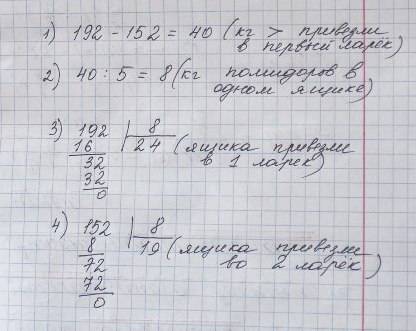 1) 192 - 152 = 40 (кг > привезли
в первый ларёк)
2) 40 : 5 = 8 (кг помидоров в
одном ящике)
3) 192 | 8
16 24 (ящика привезли
32 в 1 ларёк)
32
0
4) 152 | 8
8 19 (ящика привезли
72 во 2 ларёк)
72
0